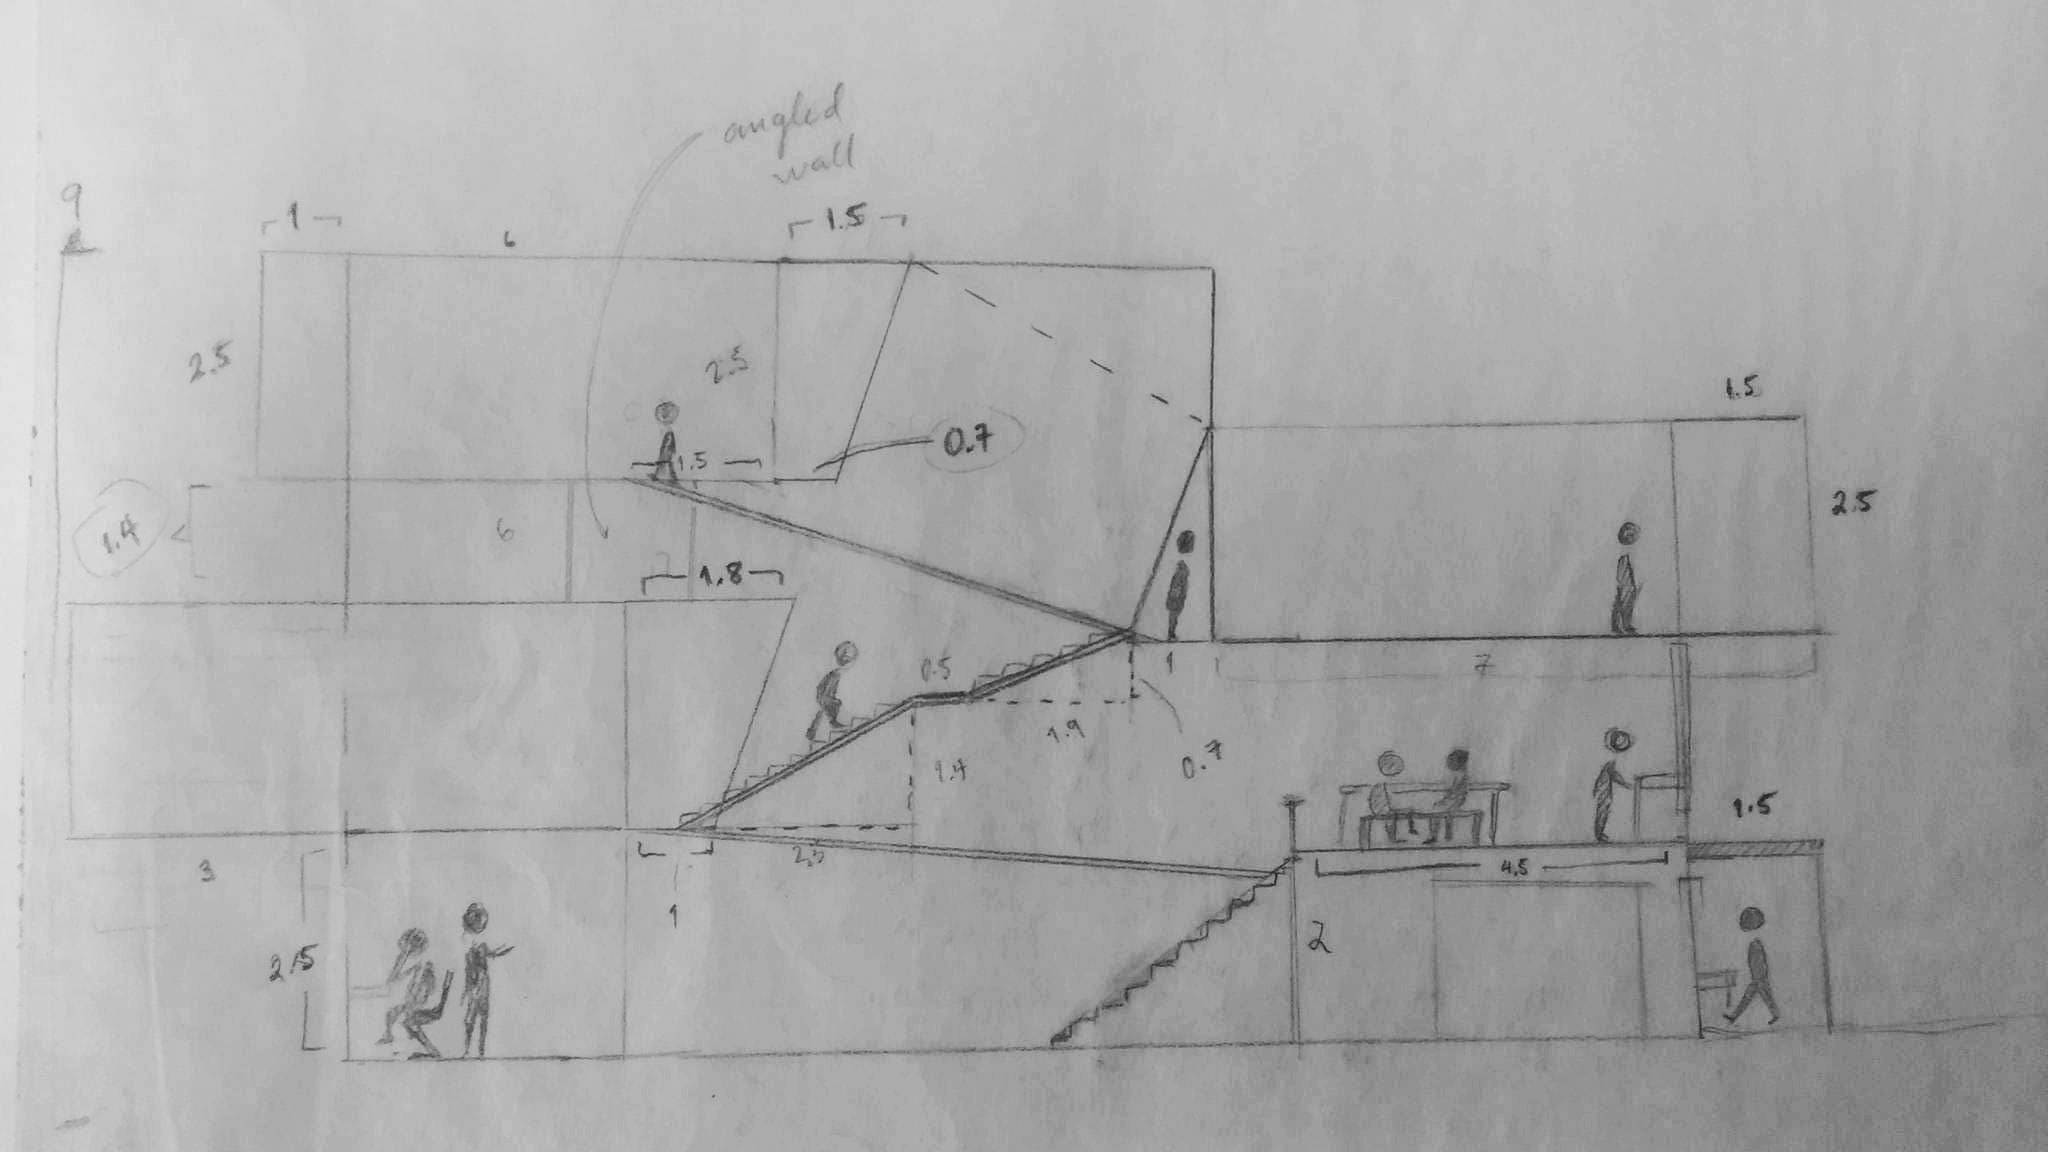 angled
wall
9
1
6
1.5
2.5
2.5
1.5
0.7
1.5
2.5
1.4
6
1.8
0.5
1
7
1.9
0.7
1.4
1.5
2.5
4.5
3
1
2.5
2